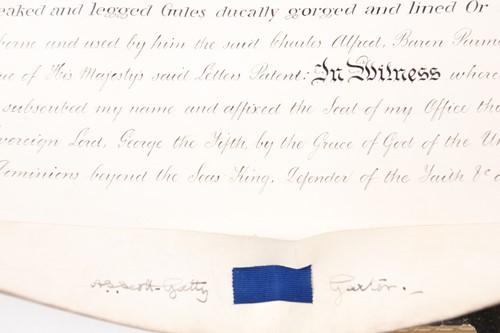 eaked and legged Gules ducally gorged and lined Or
borne and used by him the said Charles Alfred, Baron Parm
ue of His Majesty's said Letters Patent: In Witness where
subscribed my name and affixed the Seal of my Office the
overeign Lord, George the Fifth, by the Grace of God of the Un
Dominions beyond the Seas King, Defender of the Faith &c a
A. S. Scott-Gatty Garter. -